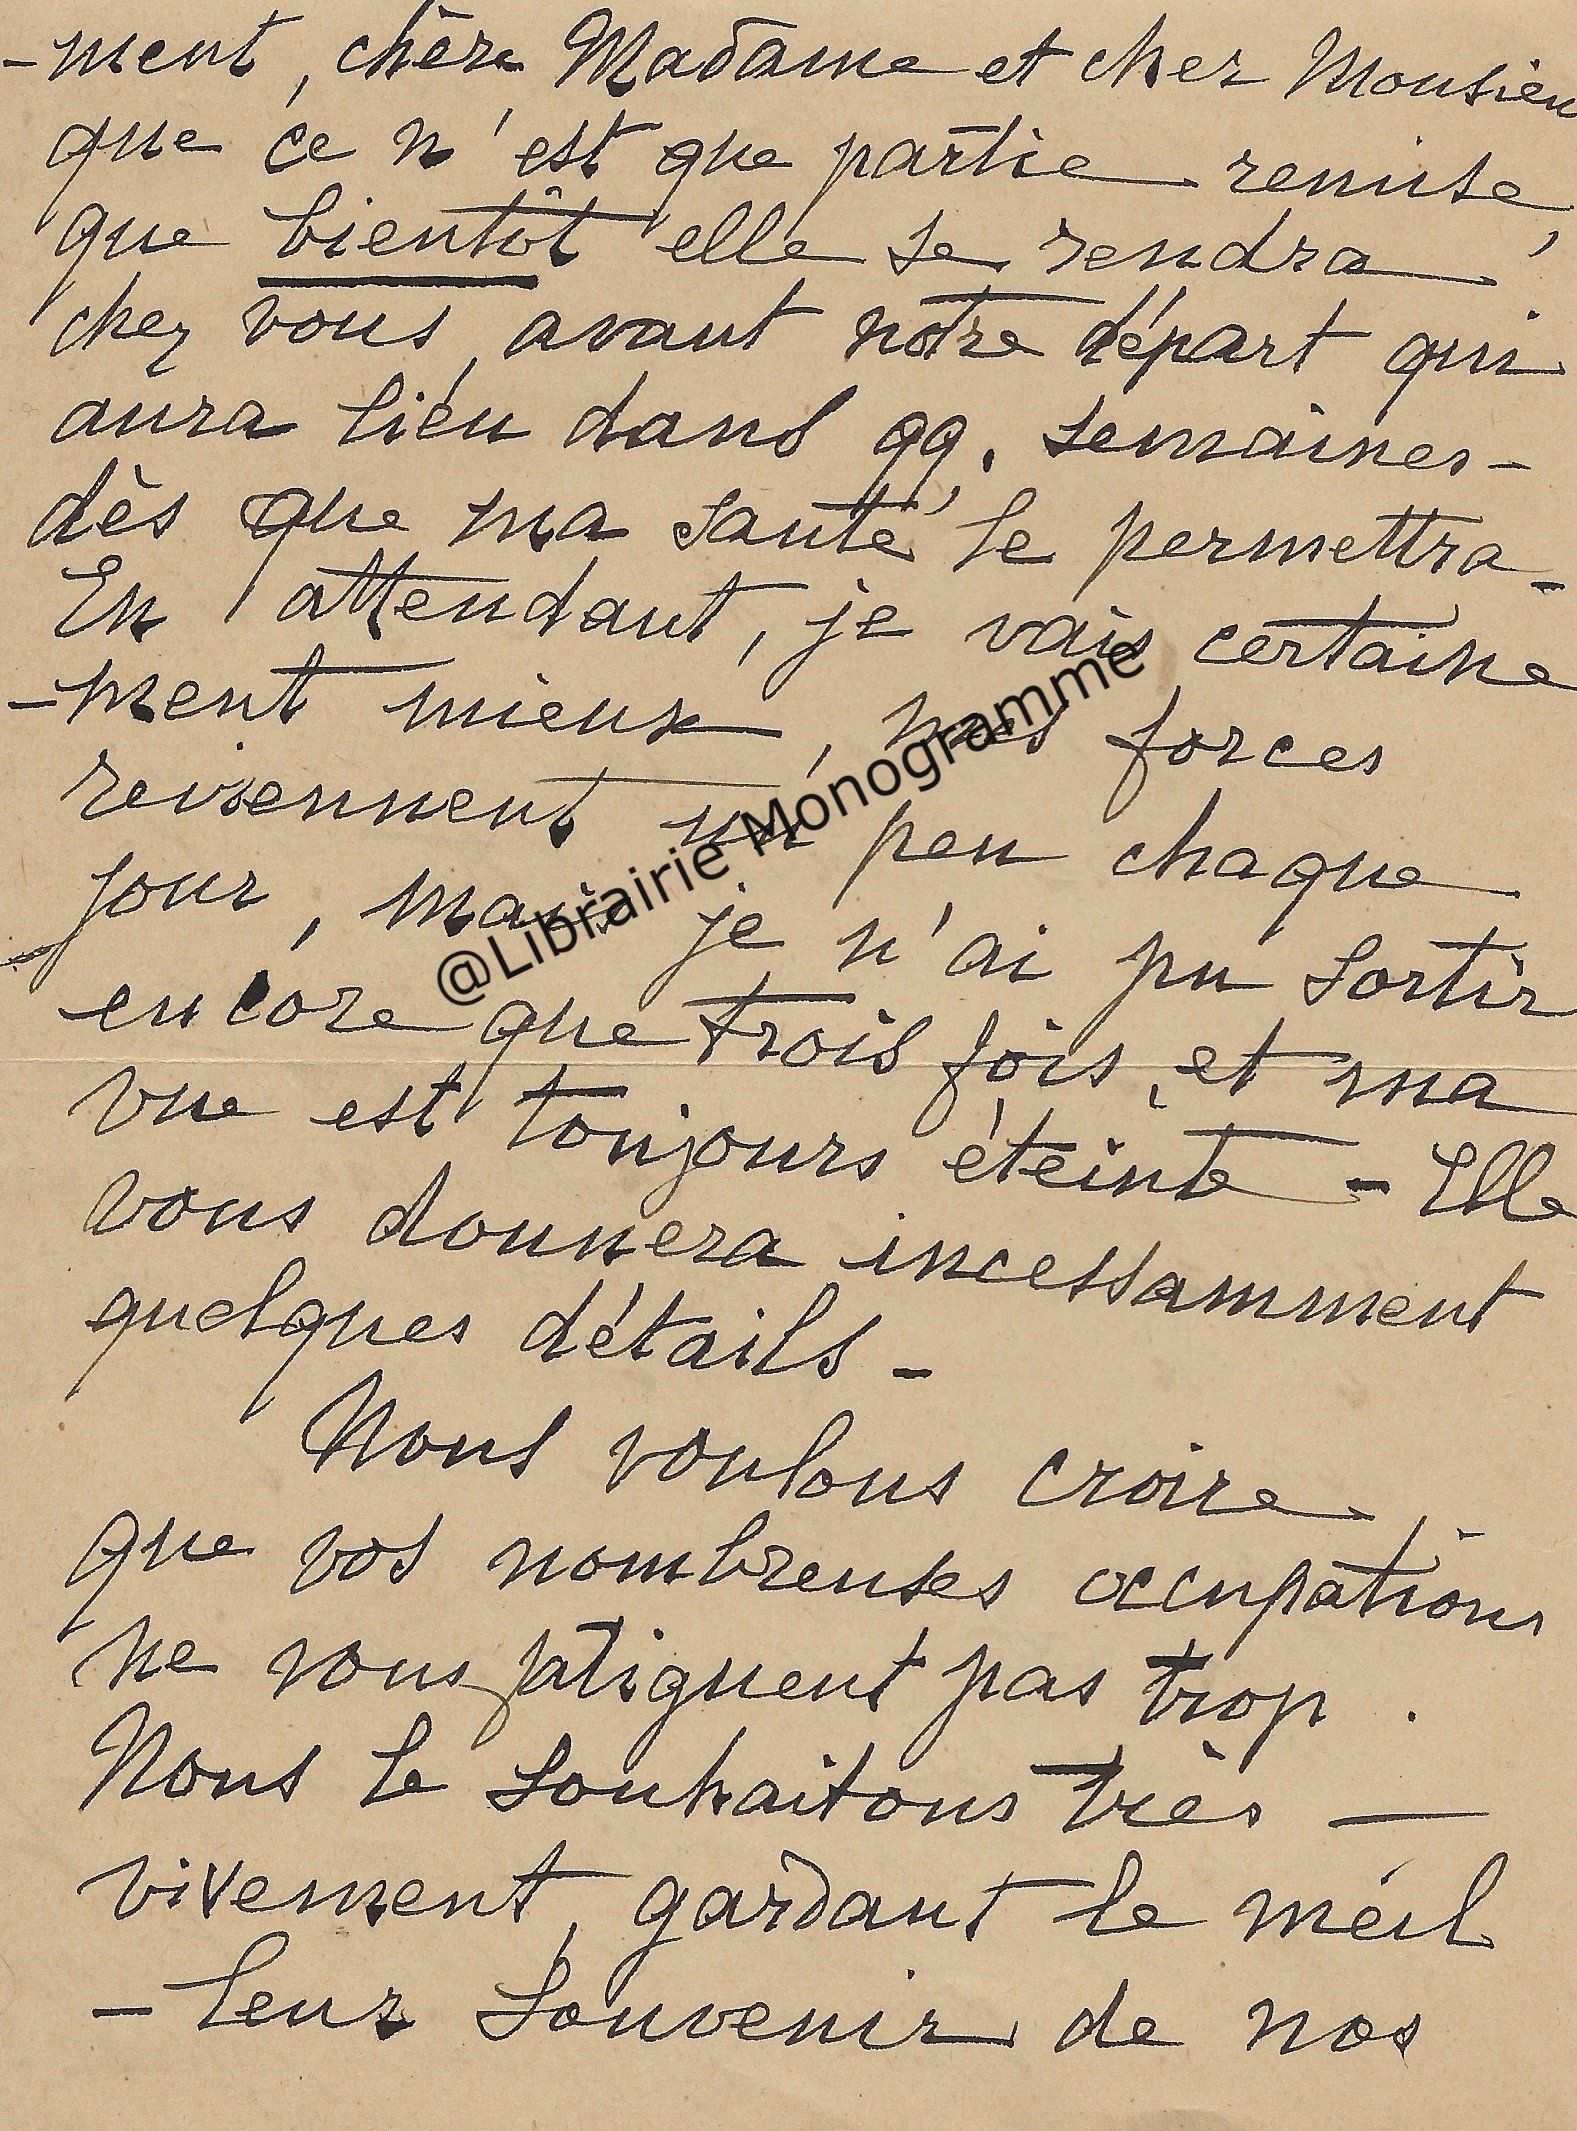 -ment, chère Madame et cher Monsieu
que ce n'est que partie remise,
que bientôt elle se rendra
chez vous, avant notre départ qui
aura lieu dans qq. semaines -
dès que ma santé le permettra -
En attendant, je vais certaine
-ment mieux, mes forces
reviennent un peu chaque
jour, mais je n'ai pu sortir
encore que trois fois, et ma
vue est toujours éteinte - Elle
vous donnera incessamment
quelques détails -
Nous voulons croire,
que vos nombreuses occupations
ne vous fatiguent pas trop.
Nous le souhaitons très —
vivement, gardant le meil
-leur souvenir de nos
@Librairie Monogramme